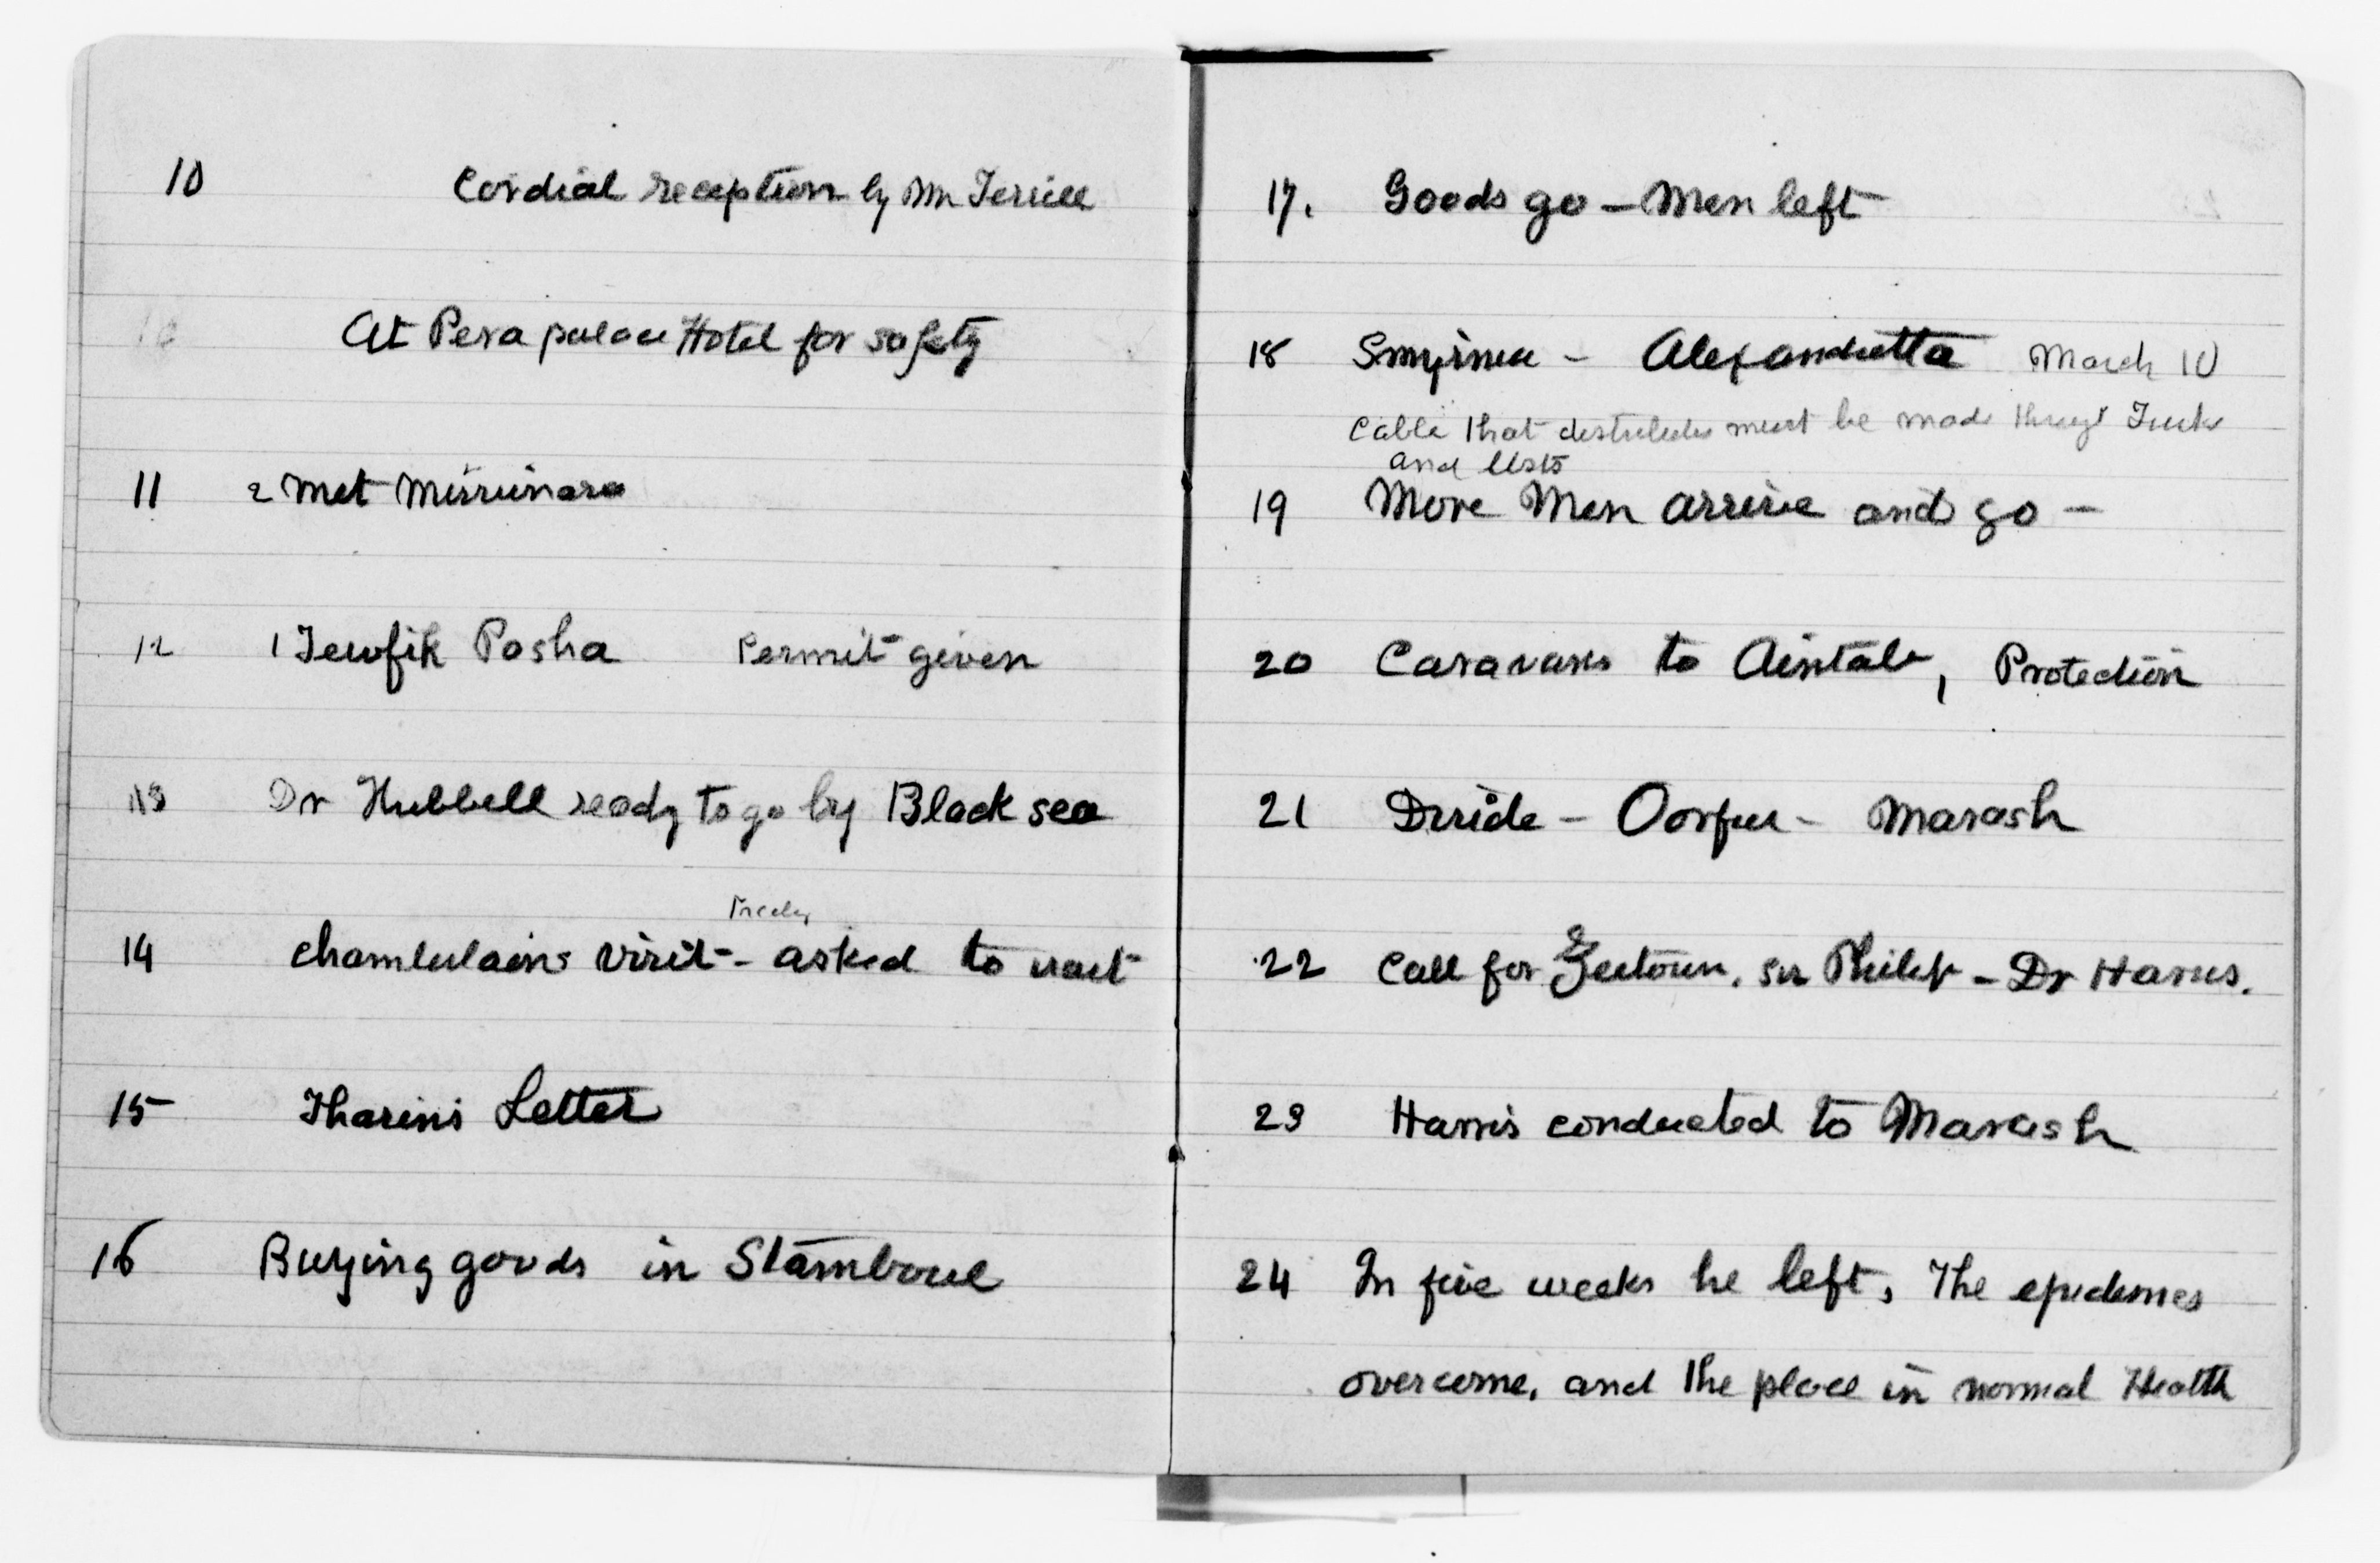 10 Cordial reception by Mr Terrell
At Pera palace Hotel for safety
11 2 Met Missionars
12 1 Tewfik Pasha Permit given
13 Dr Hubbell ready to go by Black sea
14 Chamberlains visit - asked to wait
15 Tharins Letter
16 Buying goods in Stamboul
17. Goods go - Men left
18 Smyrna - Alexandretta March 10
Cable that distributn must be made through Turks
and lists
19 More Men arrive and go -
20 Caravans to Aintab, Protection
21 Divide - Oorfa - Marash
22 Call for Zeitoun, Sir Philip - Dr Harris.
23 Harris conducted to Marash
24 In five weeks he left, The epidemics
overcome, and the place in normal Health